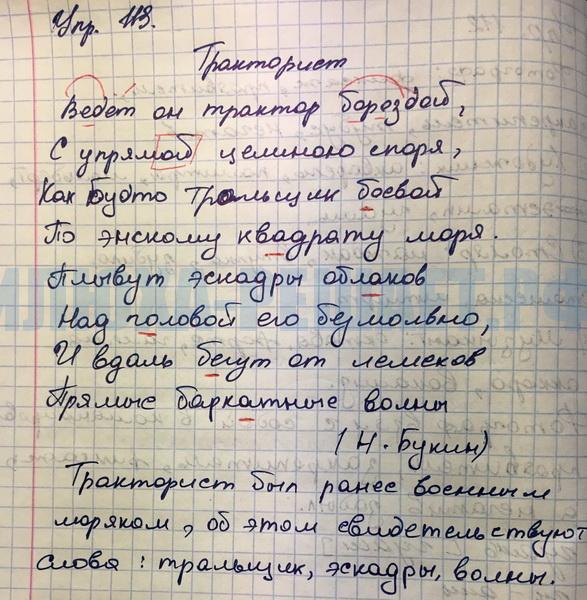 Упр. 113.
Тракторист
Ведёт он трактор бороздой,
С упрямой целиною споря,
Как будто тральщик боевой
По энскому квадрату моря.
Плывут эскадры облаков
Над головой его безмолвно,
И вдаль бегут от лемехов
Прямые бархатные волны
(Н. Букин)
Тракторист был ранее военным
моряком, об этом свидетельствуют
слова: тральщик, эскадры, волны.